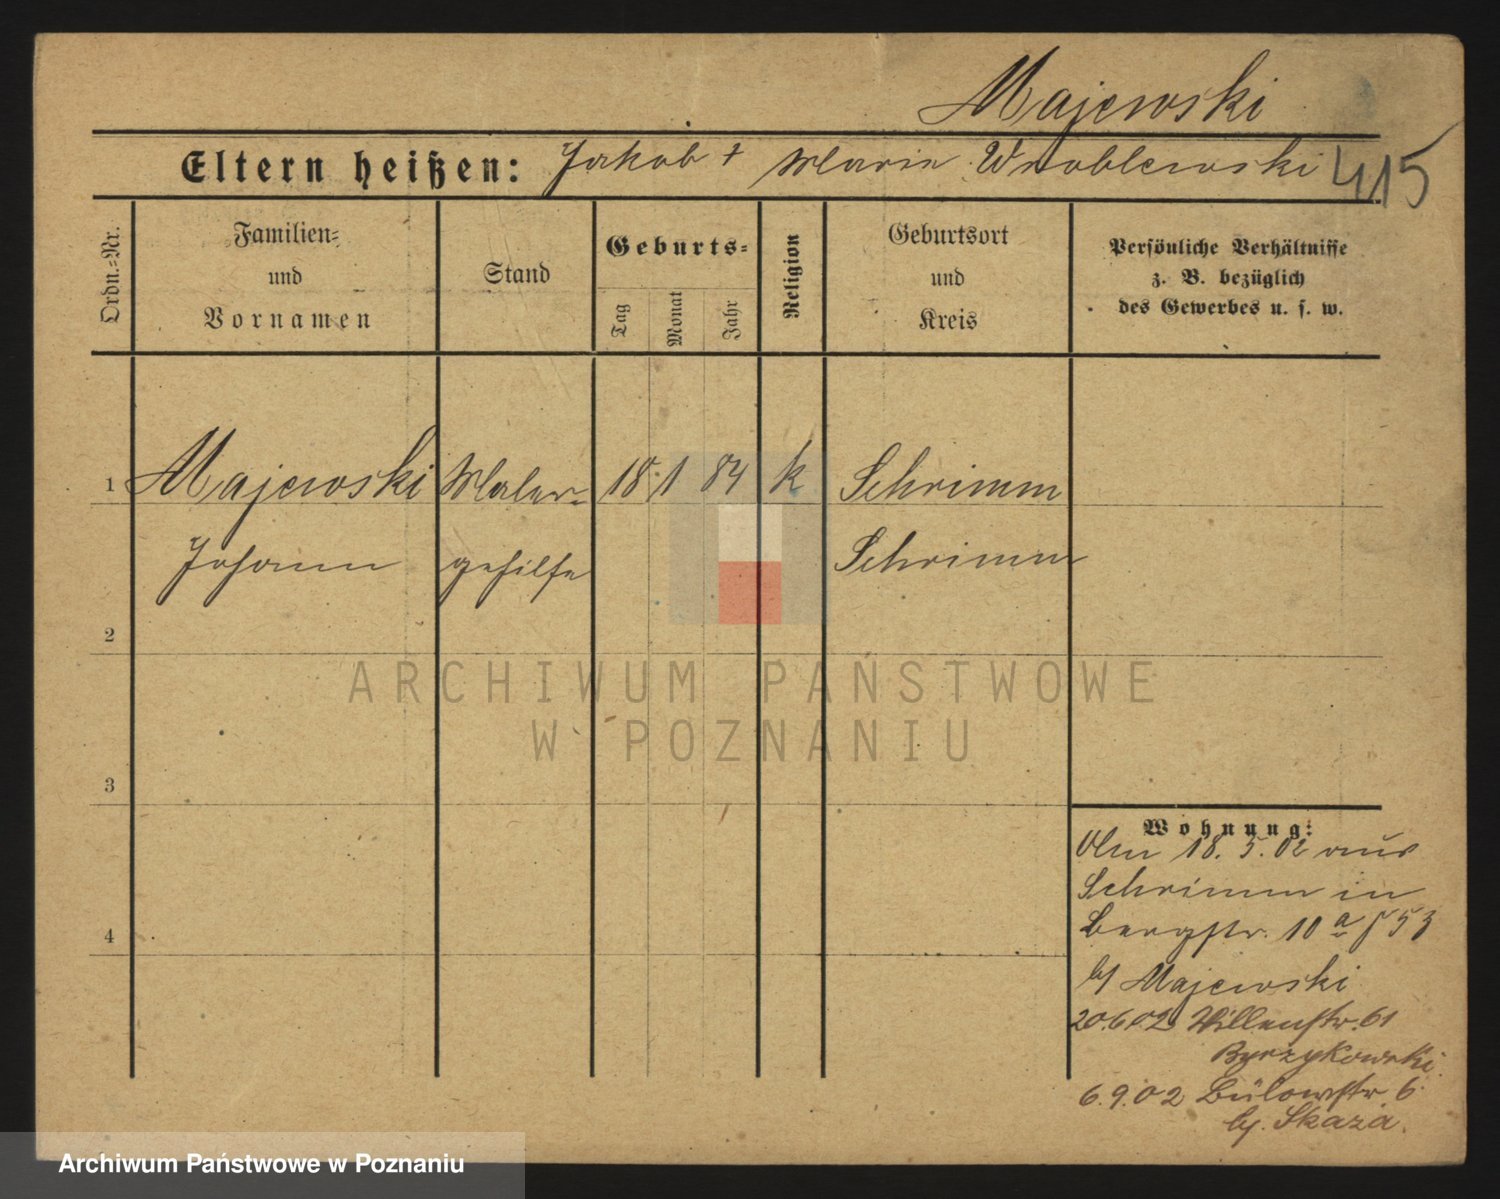 Majewski
Eltern heißen: Jakob + Marie Wroblewski
415
Ordn.=Nr.
Familien=
und
Vornamen
Stand
Geburts=
Tag
Monat
Jahr
Religion
Geburtsort
und
Kreis
Persönliche Verhältnisse
z. B. bezüglich
des Gewerbes u. s. w.
1 Majewski Maler= 18 1 84 k Schrimm
Johann gehilfe Schrimm
2
ARCHIWUM PAŃSTWOWE
W POZNANIU
3
4
Wohnung:
Am 18. 5. 02 aus
Schrimm in
Bergstr. 10 a
b/ Majewski
20.6.02 Villenstr. 61
Byrzykowski.
6.9.02 Bülowstr. 6.
by. Skaza.
Archiwum Państwowe w Poznaniu